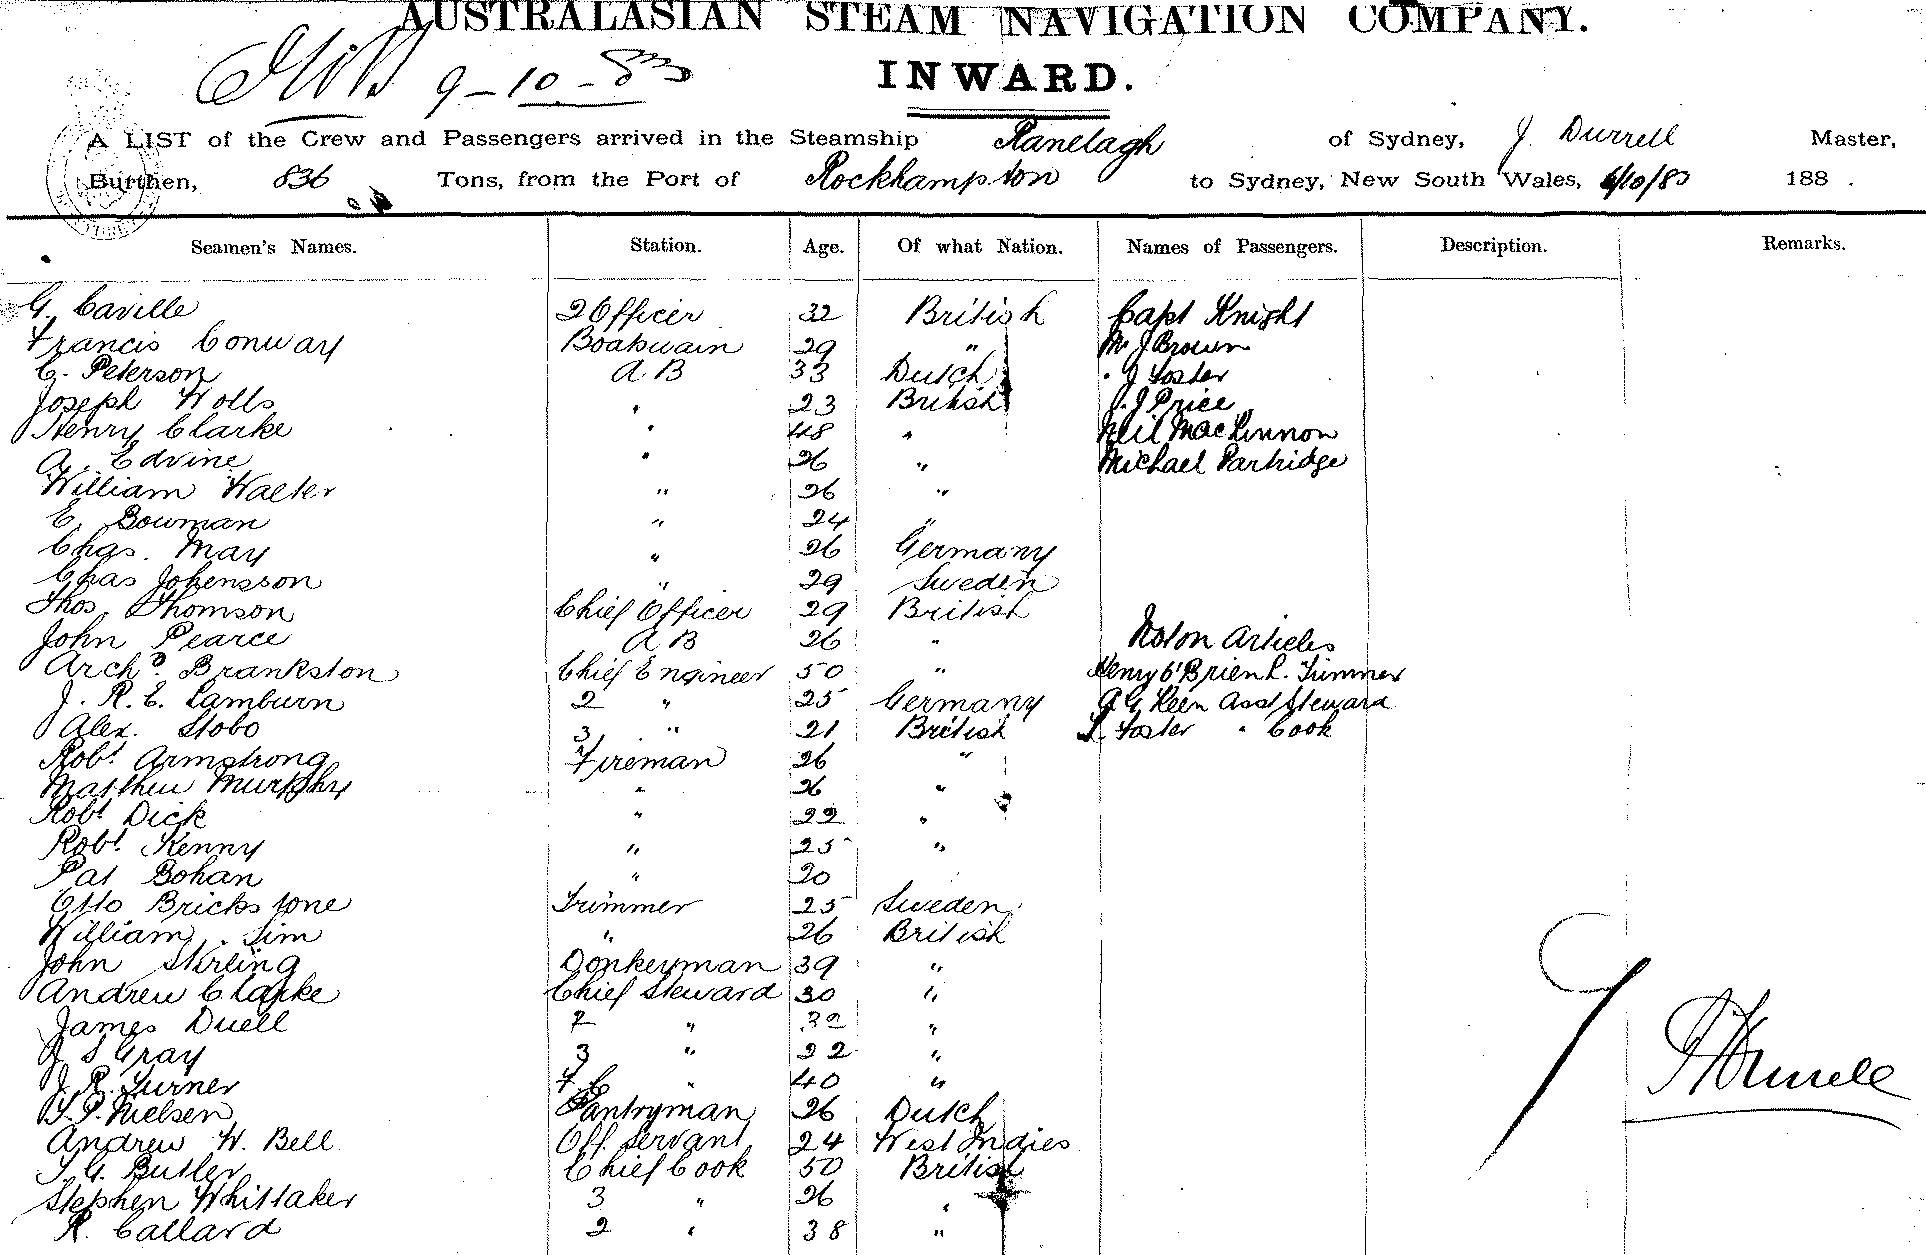 AUSTRALASIAN STEAM NAVIGATION COMPANY.
9-10-83
INWARD.
A LIST of the Crew and Passengers arrived in the Steamship Ranelagh of Sydney, J. Durrell Master,
Burthen, 836 Tons, from the Port of Rockhampton to Sydney, New South Wales, 6/10/83 188 .
Seamen's Names. Station. Age. Of what Nation. Names of Passengers. Description. Remarks.
G. Caville 2 Officer 32 British Capt Knight
Francis Conway Boatswain 29 " Mr J Brown
C. Peterson A B 33 Dutch " J Foster
Joseph Wolls " 23 British J. J Price
Henry Clarke " 48 " Neil MacKinnon
A. Edvine " 26 " Michael Partridge
William Walter " 26 "
E. Bowman " 24 "
Chas. May " 26 Germany
Chas Johensson " 29 Sweden
Thos. Thomson Chief Officer 29 British
John Pearce A B 26 " Not on Articles
Archd. Brankston Chief Engineer 50 " Henry O'Brien L. Trimmer
J. R. E. Lamburn 2 " 25 Germany A G Keen Asst Steward
Alex. Stobo 3 " 21 British L. Foster " Cook
Robt. Armstrong Fireman 26 "
Matthew Murphy " 26 "
Robt Dick " 22 "
Robt. Kenny " 25 "
Pat Bohan " 20
Otto Brickstone Trimmer 25 Sweden
William Sim " 26 British
John Stirling Donkeyman 39 "
Andrew Clarke Chief Steward 30 "
James Duell 2 " 32 "
J S Gray 3 " 22 "
J. R. Turner F. C " 40 "
T. P. Nielsen Pantryman 26 Dutch
Andrew W. Bell Off. Servant 24 West Indies
T. G. Butler Chief Cook 50 British
Stephen Whittaker 3 " 26 "
R. Callard 2 " 38 "
J Durrell